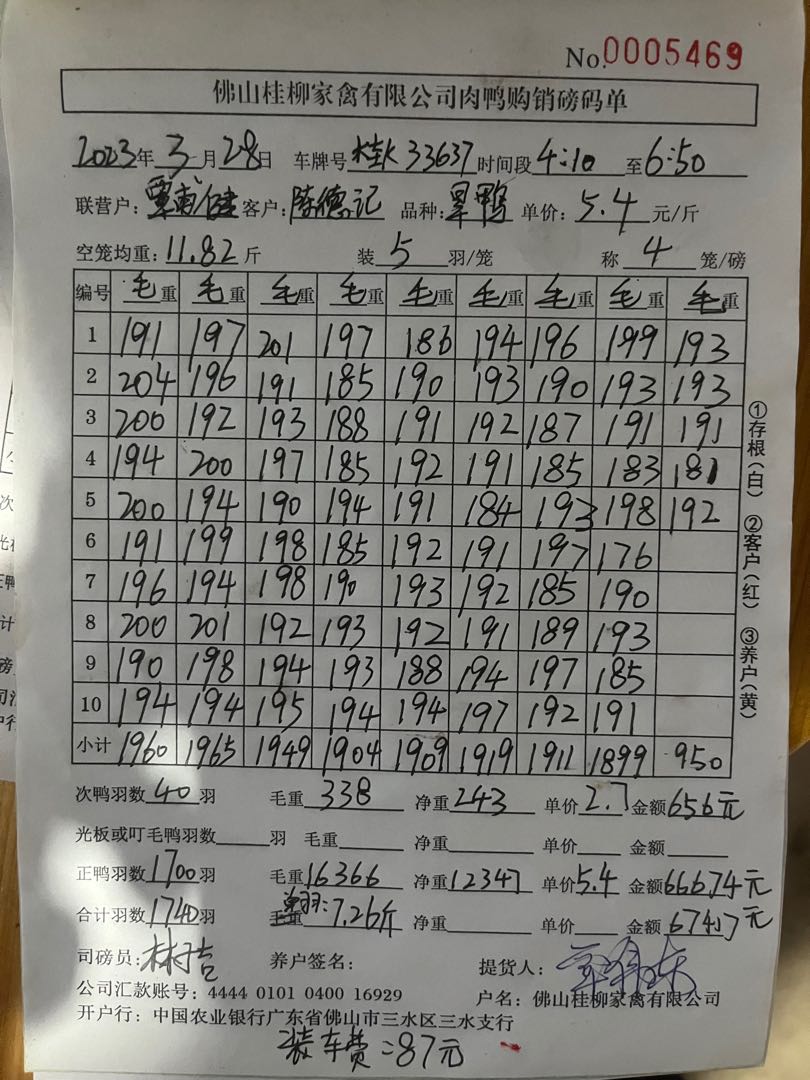 No.0005469
佛山桂柳家禽有限公司肉鸭购销磅码单
2023年 3月 28日 车牌号 桂K 33637 时间段 4:10 至 6:50
联营户: 客户: 陈德记 品种: 旱鸭 单价: 5.4 元/斤
空笼均重: 11.82 斤 装 5 羽/笼 称 4 笼/磅
编号 毛重 毛重 毛重 毛重 毛重 毛重 毛重 毛重 毛重
1 191 197 201 197 186 194 196 199 193
2 204 196 191 185 190 193 190 193 193
3 200 192 193 188 191 192 187 191 191
4 194 200 197 185 192 191 185 183 181
5 200 194 190 194 191 184 193 198 192
6 191 199 198 185 192 191 197 176
7 196 194 198 190 193 192 185 190
8 200 201 192 193 192 191 189 193
9 190 198 194 193 188 194 197 185
10 194 194 195 194 194 197 192 191
小计 1960 1965 1949 1904 1909 1919 1911 1899 950
①存根(白) ②客户(红) ③养户(黄)
次鸭羽数 40 羽 毛重 338 净重 243 单价 2.7 金额 656元
光板或叮毛鸭羽数 羽 毛重 净重 单价 金额
正鸭羽数 1700 羽 毛重 16366 净重 12347 单价 5.4 金额 66674元
合计羽数 1740 羽 毛重 单羽:7.26斤 净重 单价 金额 67417元
司磅员: 养户签名: 提货人:
公司汇款账号: 4444 0101 0400 16929 户名: 佛山桂柳家禽有限公司
开户行: 中国农业银行广东省佛山市三水区三水支行
装车费=87元